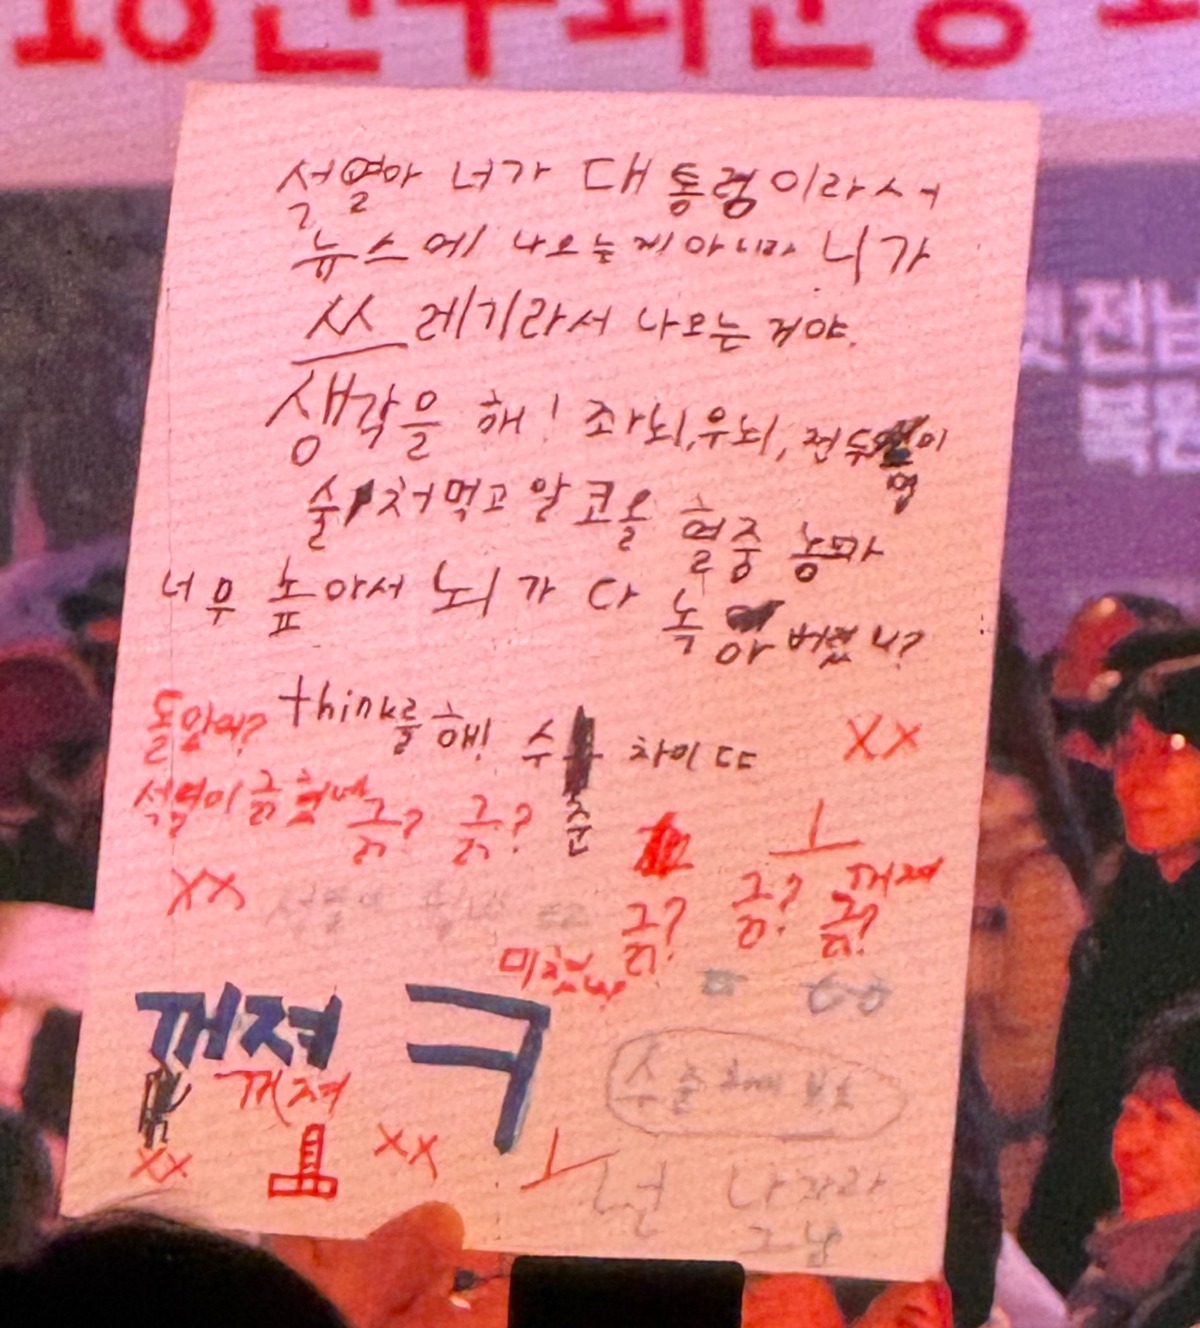 석열아 너가 대통령이라서
뉴스에 나오는게 아니라 니가
쓰레기라서 나오는 거야.
생각을 해! 좌뇌, 우뇌, 전두엽이
술 처먹고 알코올 혈중 농도가
너무 높아서 뇌가 다 녹아버렸니?
think를 해! 수준 차이 ㄸㄷ
돌았어? XX
석열이 긁혔네 긁? 긁?
ㅗ
XX 긁? 긁? 꺼져 긁?
미쳤냐?
꺼져 ㅋ
꺼져
XX XX ㅗ
넌 나자라
그냥
전남